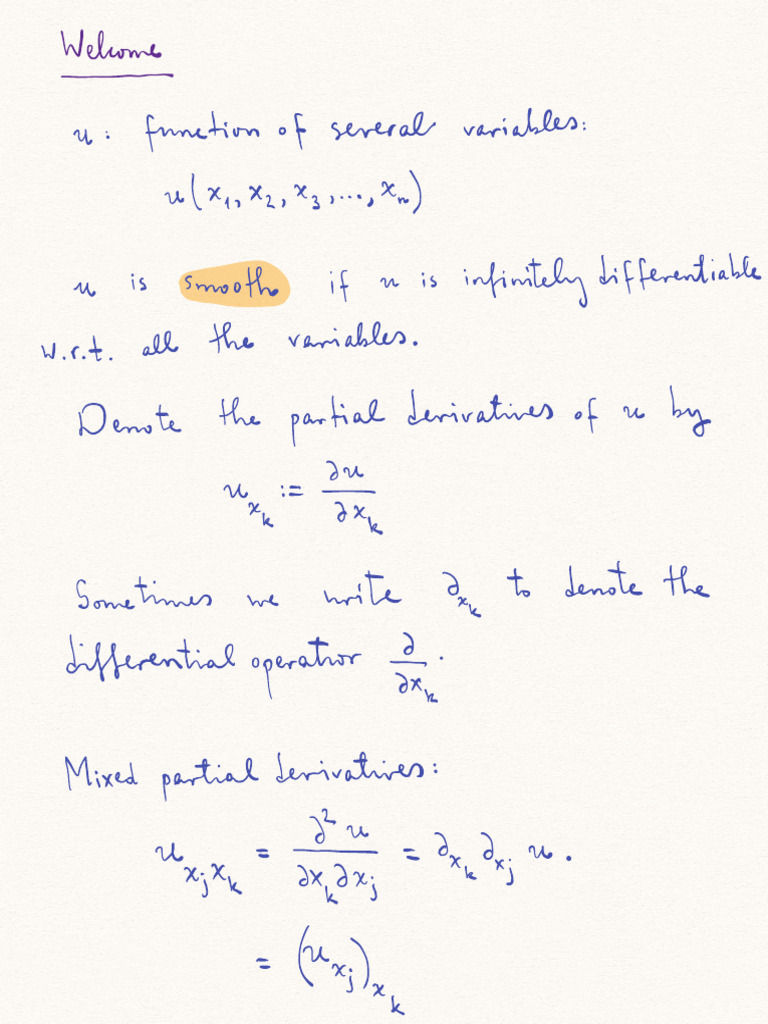 Welcome
u: function of several variables:
u(x₁, x₂, x₃, ..., xₙ)
u is smooth if u is infinitely differentiable
w.r.t. all the variables.
Denote the partial derivatives of u by
u_{x_k} := ∂u/∂x_k
Sometimes we write ∂_{x_k} to denote the
differential operatior ∂/∂x_k.
Mixed partial derivatives:
u_{x_j x_k} = ∂²u/∂x_k∂x_j = ∂_{x_k} ∂_{x_j} u.
= (u_{x_j})_{x_k}